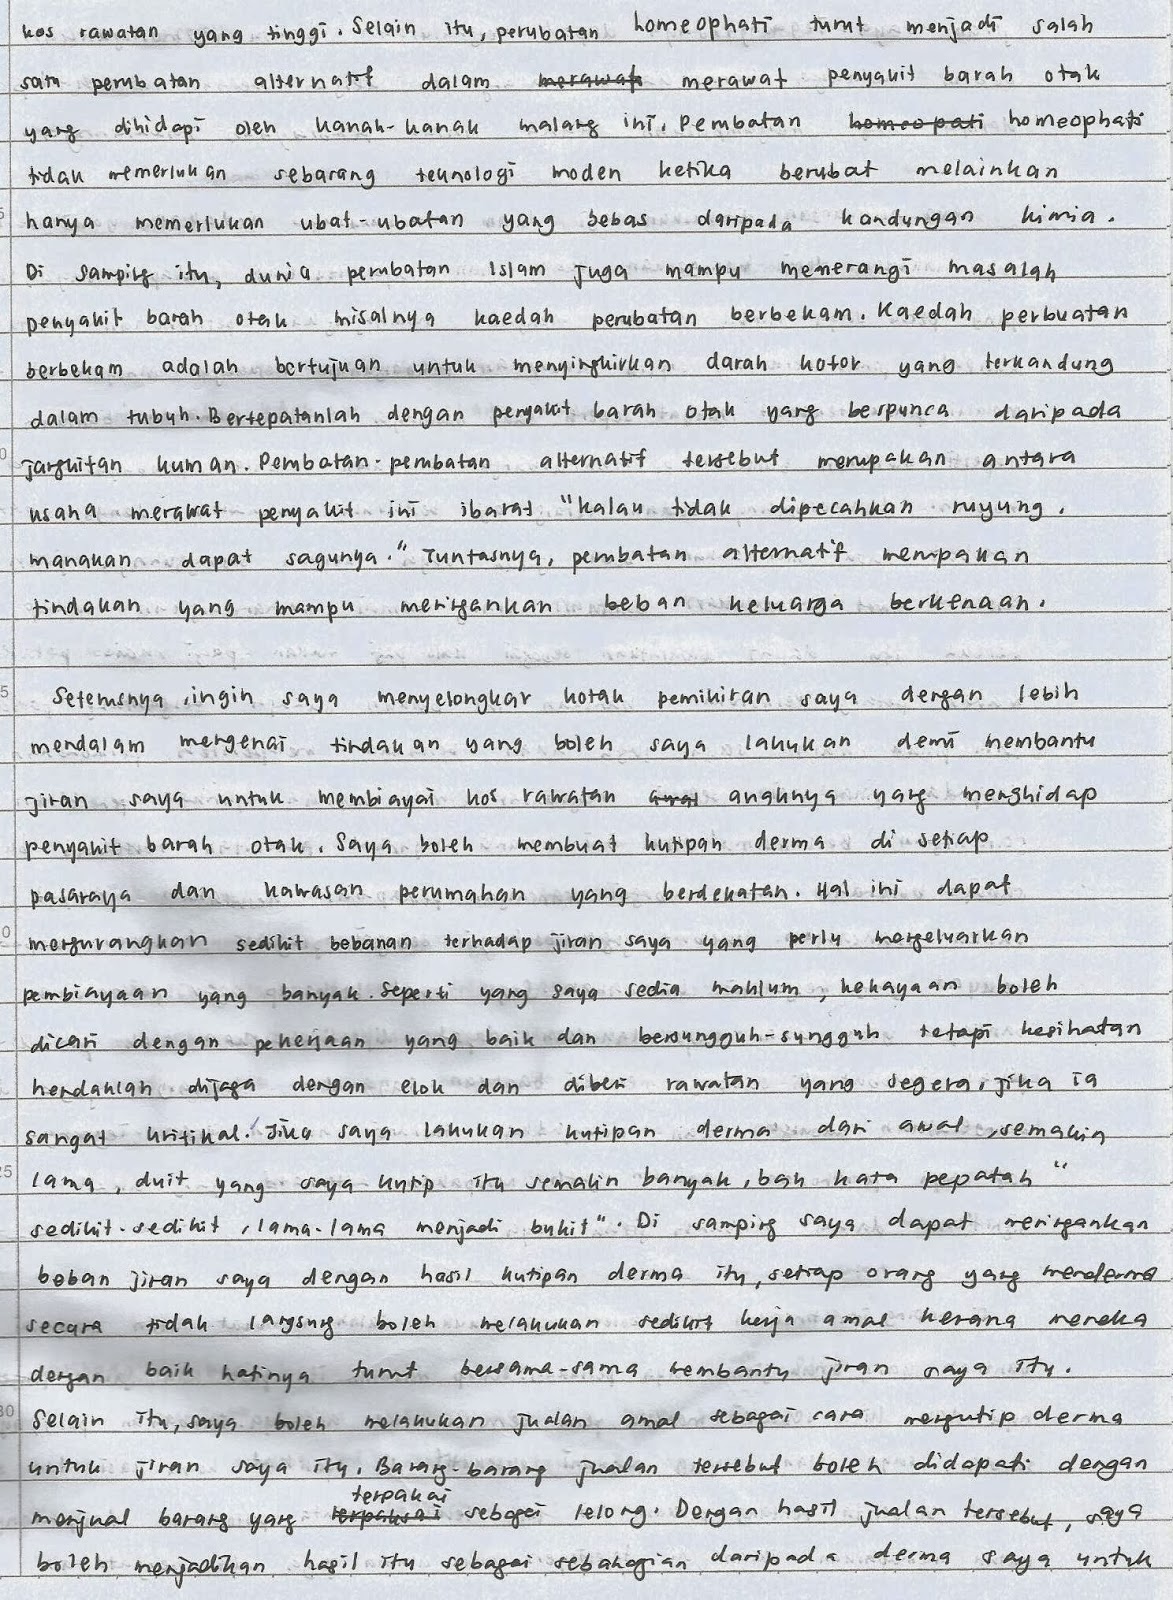 kos rawatan yang tinggi. Selain itu, perubatan homeophati turut menjadi salah
satu perubatan alternatif dalam merawat merawat penyakit barah otak
yang dihidapi oleh kanak-kanak malang ini. Perubatan homeopati homeophati
tidak memerlukan sebarang teknologi moden ketika berubat melainkan
hanya memerlukan ubat-ubatan yang bebas daripada kandungan kimia.
Di samping itu, dunia perubatan Islam juga mampu memerangi masalah
penyakit barah otak misalnya kaedah perubatan berbekam. Kaedah perbuatan
berbekam adalah bertujuan untuk menyingkirkan darah kotor yang terkandung
dalam tubuh. Bertepatanlah dengan penyakit barah otak yang berpunca daripada
jangkitan kuman. Perubatan-perubatan alternatif tersebut merupakan antara
usaha merawat penyakit ini ibarat "kalau tidak dipecahkan ruyung,
manakan dapat sagunya." Tuntasnya, perubatan alternatif merupakan
tindakan yang mampu meringankan beban keluarga berkenaan.
5 Seterusnya, ingin saya menyelongkar kotak pemikiran saya dengan lebih
mendalam mengenai tindakan yang boleh saya lakukan demi membantu
jiran saya untuk membiayai kos rawatan anaknya yang menghidap
penyakit barah otak. Saya boleh membuat kutipan derma di setiap
pasaraya dan kawasan perumahan yang berdekatan. Hal ini dapat
0 mengurangkan sedikit bebanan terhadap jiran saya yang perlu mengeluarkan
pembiayaan yang banyak. Seperti yang saya sedia maklum, kekayaan boleh
dicari dengan pekerjaan yang baik dan bersungguh-sungguh tetapi kesihatan
hendaklah dijaga dengan elok dan diberi rawatan yang segera, jika ia
sangat kritikal. Jika saya lakukan kutipan derma dari awal, semakin
25 lama, duit yang saya kutip itu semakin banyak, bak kata pepatah "
sedikit-sedikit, lama-lama menjadi bukit". Di samping saya dapat meringankan
beban jiran saya dengan hasil kutipan derma itu, setiap orang yang menderma
secara tidak langsung boleh melakukan sedikit kerja amal kerana mereka
dengan baik hatinya turut bersama-sama membantu jiran saya itu.
30 Selain itu, saya boleh melakukan jualan amal sebagai cara mengutip derma
untuk jiran saya itu. Barang-barang jualan tersebut boleh didapati dengan
terpakai
menjual barang yang terpaksai sebagai lelong. Dengan hasil jualan tersebut, saya
boleh menjadikan hasil itu sebagai sebahagian daripada derma saya untuk